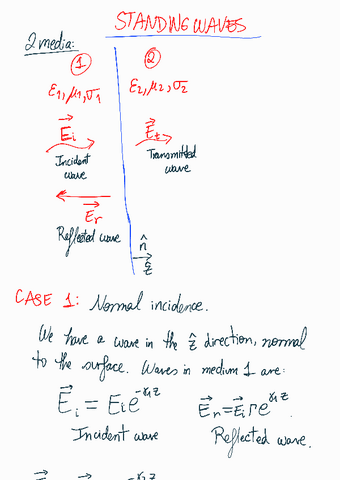 STANDING WAVES
2 media:
① ②
ε₁, μ₁, σ₁ ε₂, μ₂, σ₂
E⃗i E⃗t
Incident wave Transmitted wave
E⃗r
Reflected wave
n̂
ẑ
CASE 1: Normal incidence.
We have a wave in the ẑ direction, normal
to the surface. Waves in medium 1 are:
E⃗i = Ei e^-γ₁z E⃗r = E⃗i Γ e^γ₁z
Incident wave Reflected wave.